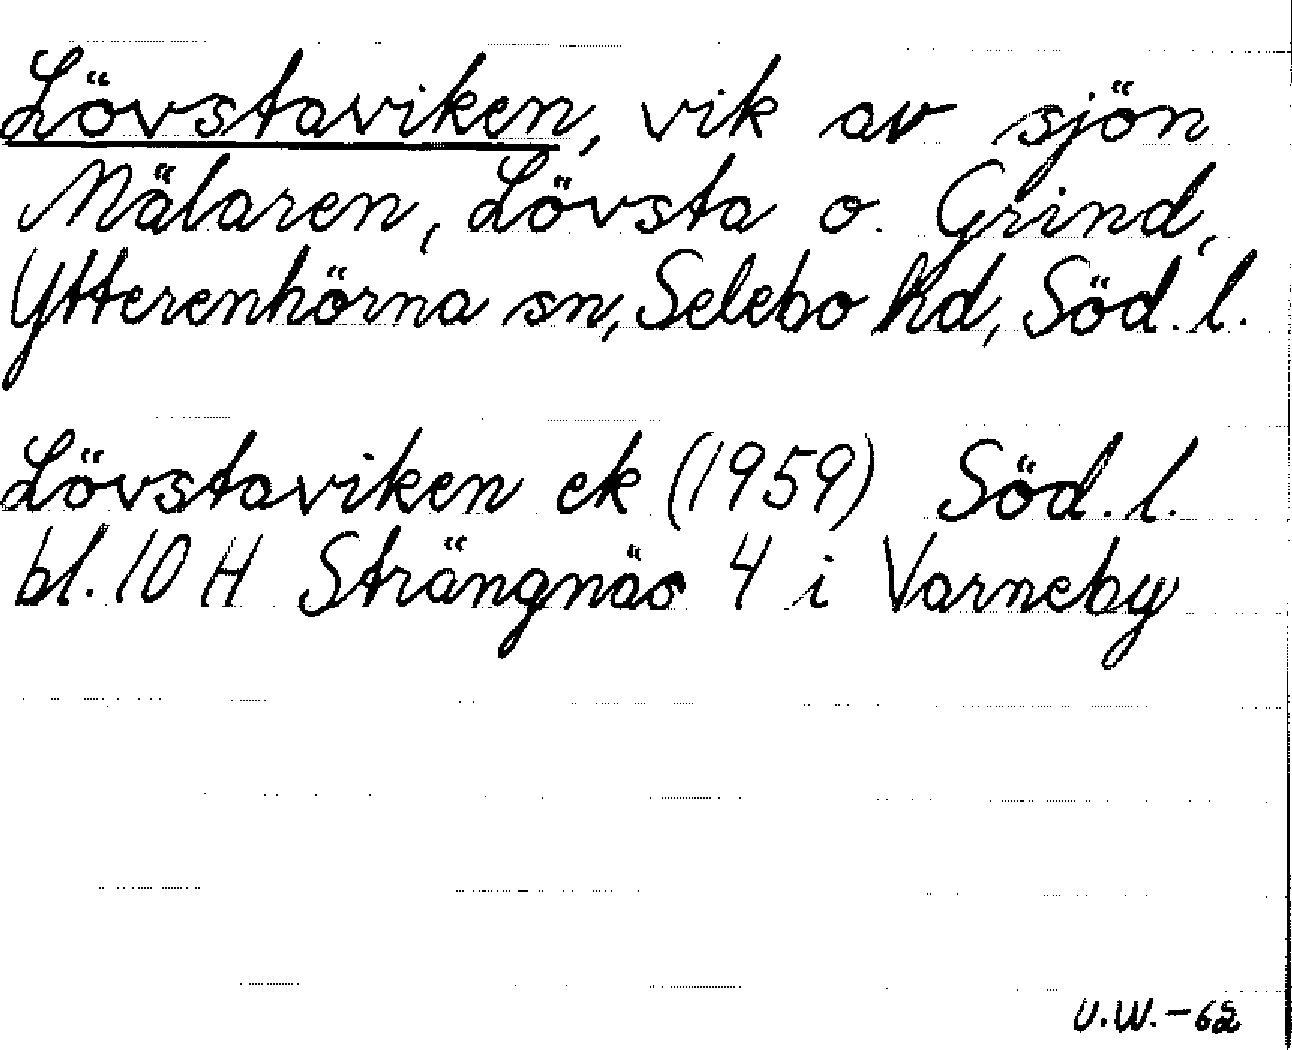 Lövstaviken, vik av sjön
Mälaren, Lövsta o. Grind,
Ytterenhörna sn, Selebo hd, Söd. l.
Lövstaviken ek (1959) Söd. l.
bl. 10 H Strängnäs 4 i Varneby
U.W.-62